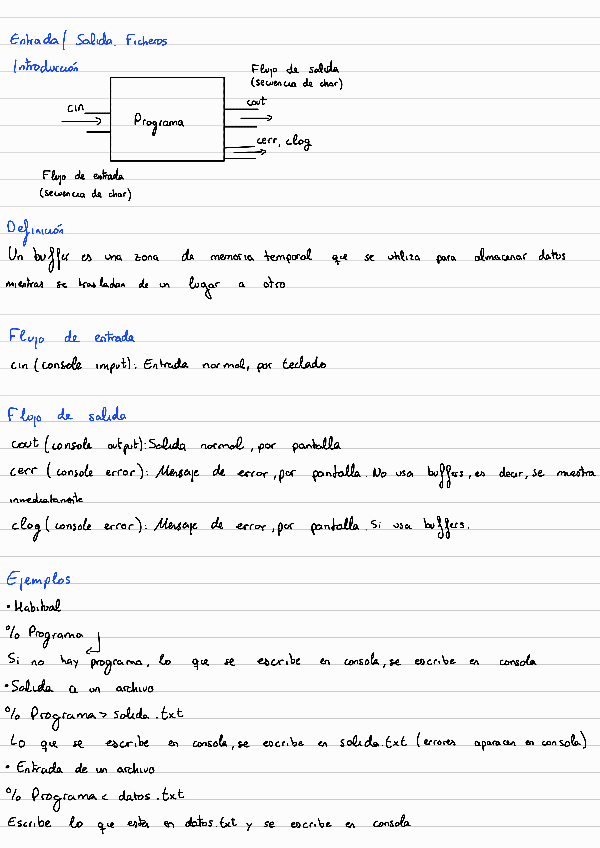 Entrada/ Salida. Ficheros
Introducción
Flujo de salida
(secuencia de char)
cin
cout
Programa
cerr, clog
Flujo de entrada
(secuencia de char)
Definición
Un buffer es una zona de memoria temporal que se utiliza para almacenar datos
mientras se trasladan de un lugar a otro
Flujo de entrada
cin (console input): Entrada normal, por teclado
Flujo de salida
cout (console output): Salida normal, por pantalla
cerr (console error): Mensaje de error, por pantalla. No usa buffers, es decir, se muestra
inmediatamente
clog (console error): Mensaje de error, por pantalla. Si usa buffers.
Ejemplos
• Habitual
% Programa
Si no hay programa, lo que se escribe en consola, se escribe en consola
• Salida a un archivo
% Programa > salida.txt
Lo que se escribe en consola, se escribe en salida.txt (errores aparacen en consola)
• Entrada de un archivo
% Programa < datos.txt
Escribe lo que esta en datos.txt y se escribe en consola